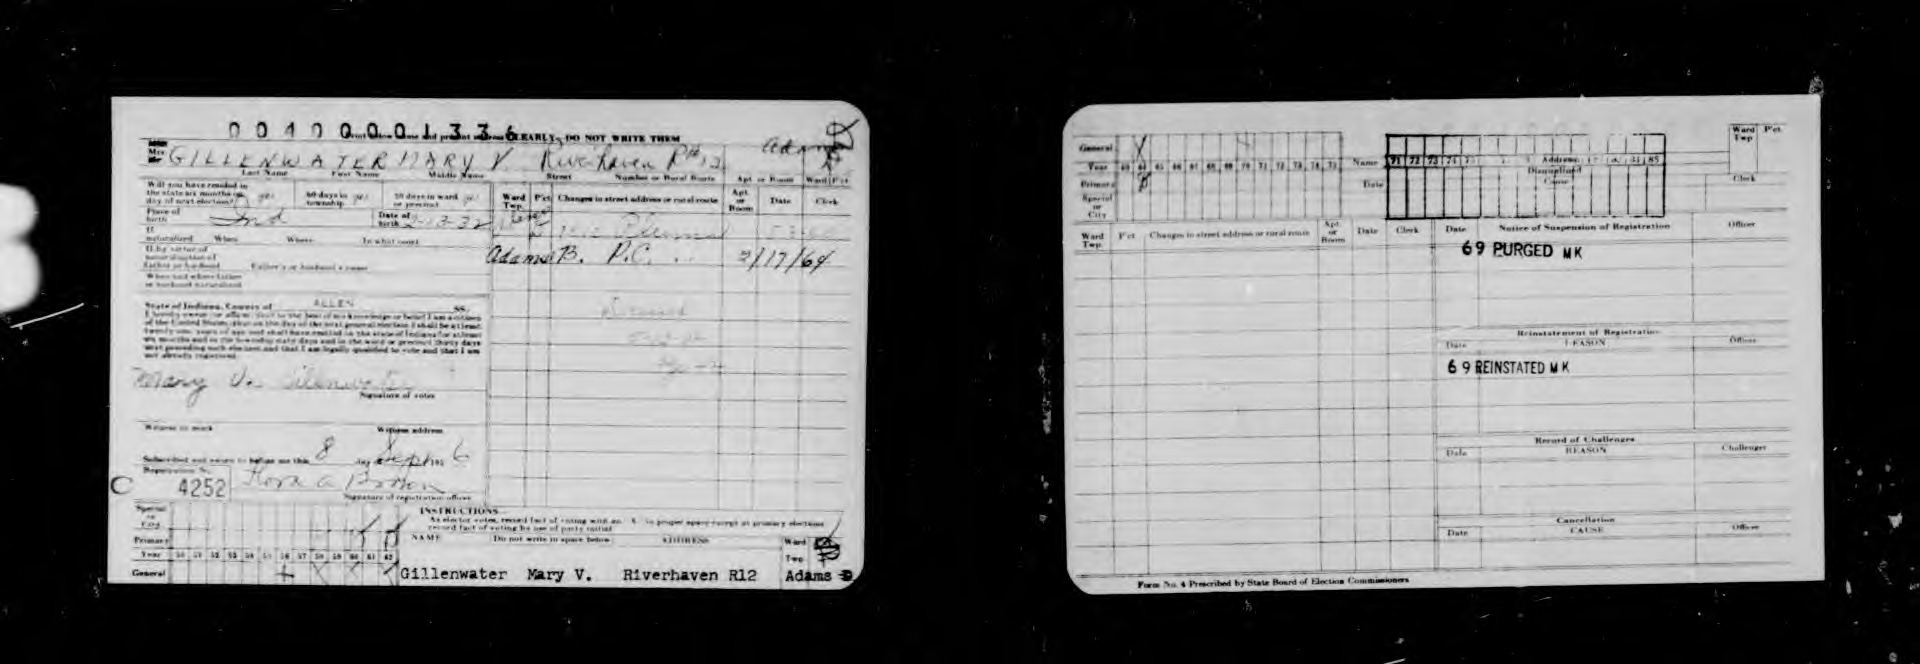 00400001336
CLEARLY, DO NOT WRITE THEM
Mrs. GILLENWATER MARY V. Riverhaven R#12 Adams
Last Name First Name Middle Name Street Number or Rural Route Apt. or Room Ward P'ct
Will you have resided in the state six months on day of next election? yes 60 days in township yes 30 days in ward or precinct yes
Ward Twp. P'ct Changes to street address or rural route Apt. or Room Date Clerk
Place of birth Ind Date of birth
If naturalized When Where In what court
Adams B. P.C. 2/17/64
If by virtue of naturalization of father or husband Father's or husband's name
When and where father or husband naturalized
State of Indiana, County of ALLEN SS:
I hereby swear (or affirm) that to the best of my knowledge or belief I am a citizen
of the United States, that on the day of the next general election I shall be at least
twenty-one years of age and shall have resided in the state of Indiana for at least
six months and in the township sixty days and in the ward or precinct thirty days
next preceding such election and that I am legally qualified to vote and that I am
not already registered.
Mary V. Gillenwater
Signature of voter
Witness to mark Witness address
Subscribed and sworn to before me this 8 day of Sept 195 6
Registration No.
C 4252 Flora A
Signature of registration officer
Special or City
Primary
Year 50 51 52 53 54 55 56 57 58 59 60 61 62
General
INSTRUCTIONS
As elector votes, record fact of voting with an X in proper space except at primary elections
record fact of voting by use of party initial
NAME Do not write in space below ADDRESS Ward
Twp
Gillenwater Mary V. Riverhaven R12 Adams
General
Year 65 66 67 68 69 70 71 72 73 74 75
Primary
Special or City
Name 71 72 73 74 Address 85
Date Disqualified Cause Clerk
Ward Twp P'ct
Ward Twp. P'ct Changes to street address or rural route Apt. or Room Date Clerk
Date Notice of Suspension of Registration Officer
69 PURGED MK
Reinstatement of Registration
Date REASON Officer
69 REINSTATED MK
Record of Challenges
Date REASON Challenger
Cancellation
Date CAUSE Officer
Form No. 4 Prescribed by State Board of Election Commissioners